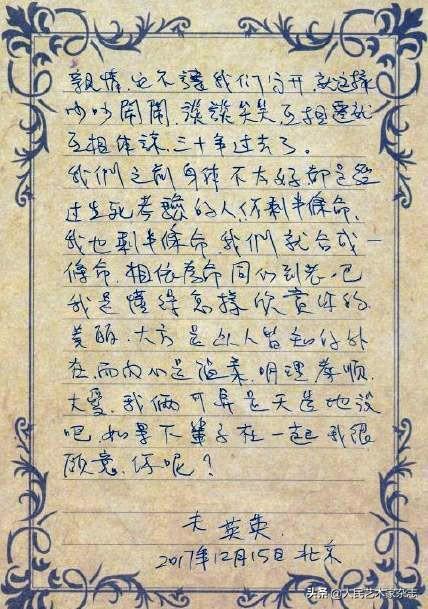 親情,它不讓我們分開,就這樣
吵吵鬧鬧,談談笑笑,互相遷就
互相体諒,三十年过去了。
我們之前身体不太好,都是受
过生死考驗的人,你剩半條命,
我也剩半條命,我們就合成一
條命,相依為命同伴到老吧
我是懂得怎樣欣賞你的
美丽、大方是众人皆知的外
在,而内心是温柔,明理,孝順,
大愛,我倆可算是天造地設
吧,如果下輩子在一起我很
願意,你呢?
夫 英
2017年12月15日 北京
头条@人民艺术家杂志